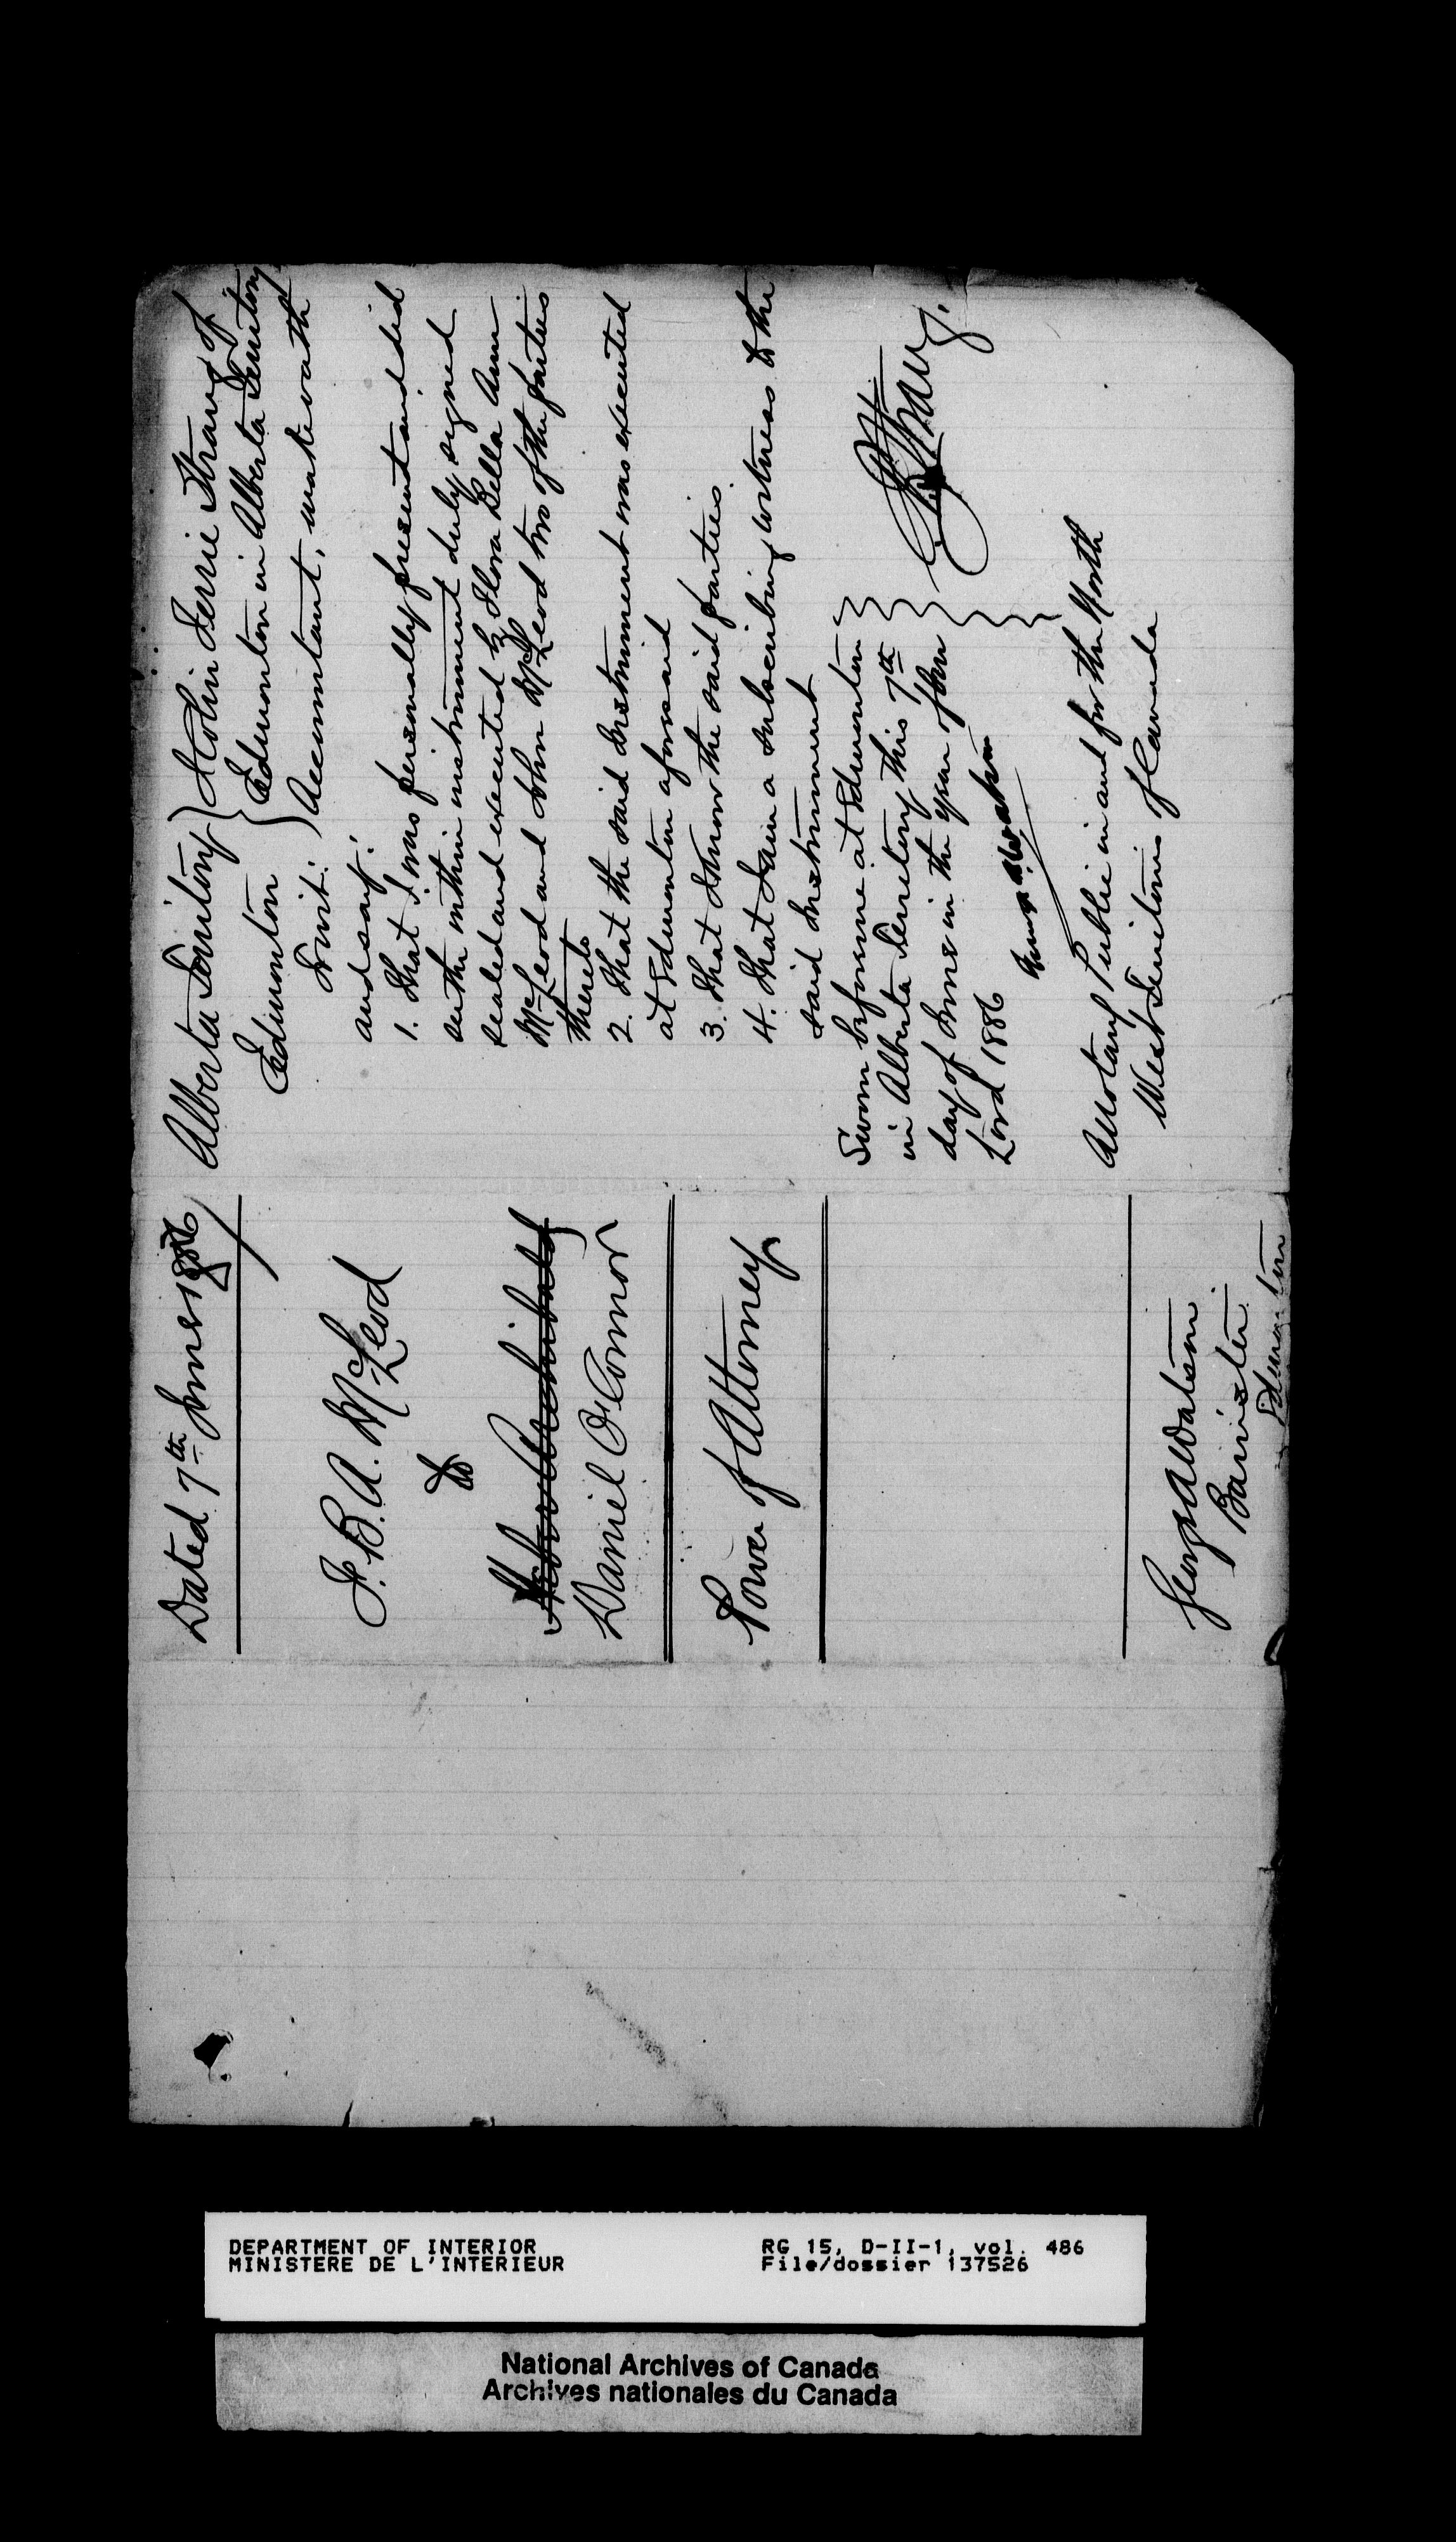 Alberta Territory } I Colin Ferrie Strang of
Edmonton } Edmonton in Alberta Territory
To wit: } Accountant, make oath
and say:
1. That I was personally present and did
see the within instrument duly signed
sealed and executed by Flora Bella Ann
McLeod and John McLeod two of the parties
thereto
2. That the said Instrument was executed
at Edmonton aforesaid
3. That I know the said parties.
4. That I am a subscribing witness to the
said Instrument
Sworn before me at Edmonton
in Alberta Territory this 7th
day of June in the year of our
Lord 1886
Strang.
A Notary Public in and for the North
West Territories of Canada
Dated 7th June 1886
F. B. A. McLeod
to
Daniel O'Connor
Power of Attorney
George A Watson
Barrister
Edmonton
DEPARTMENT OF INTERIOR
MINISTERE DE L'INTERIEUR
RG 15, D-II-1, vol. 486
File/dossier 137526
National Archives of Canada
Archives nationales du Canada